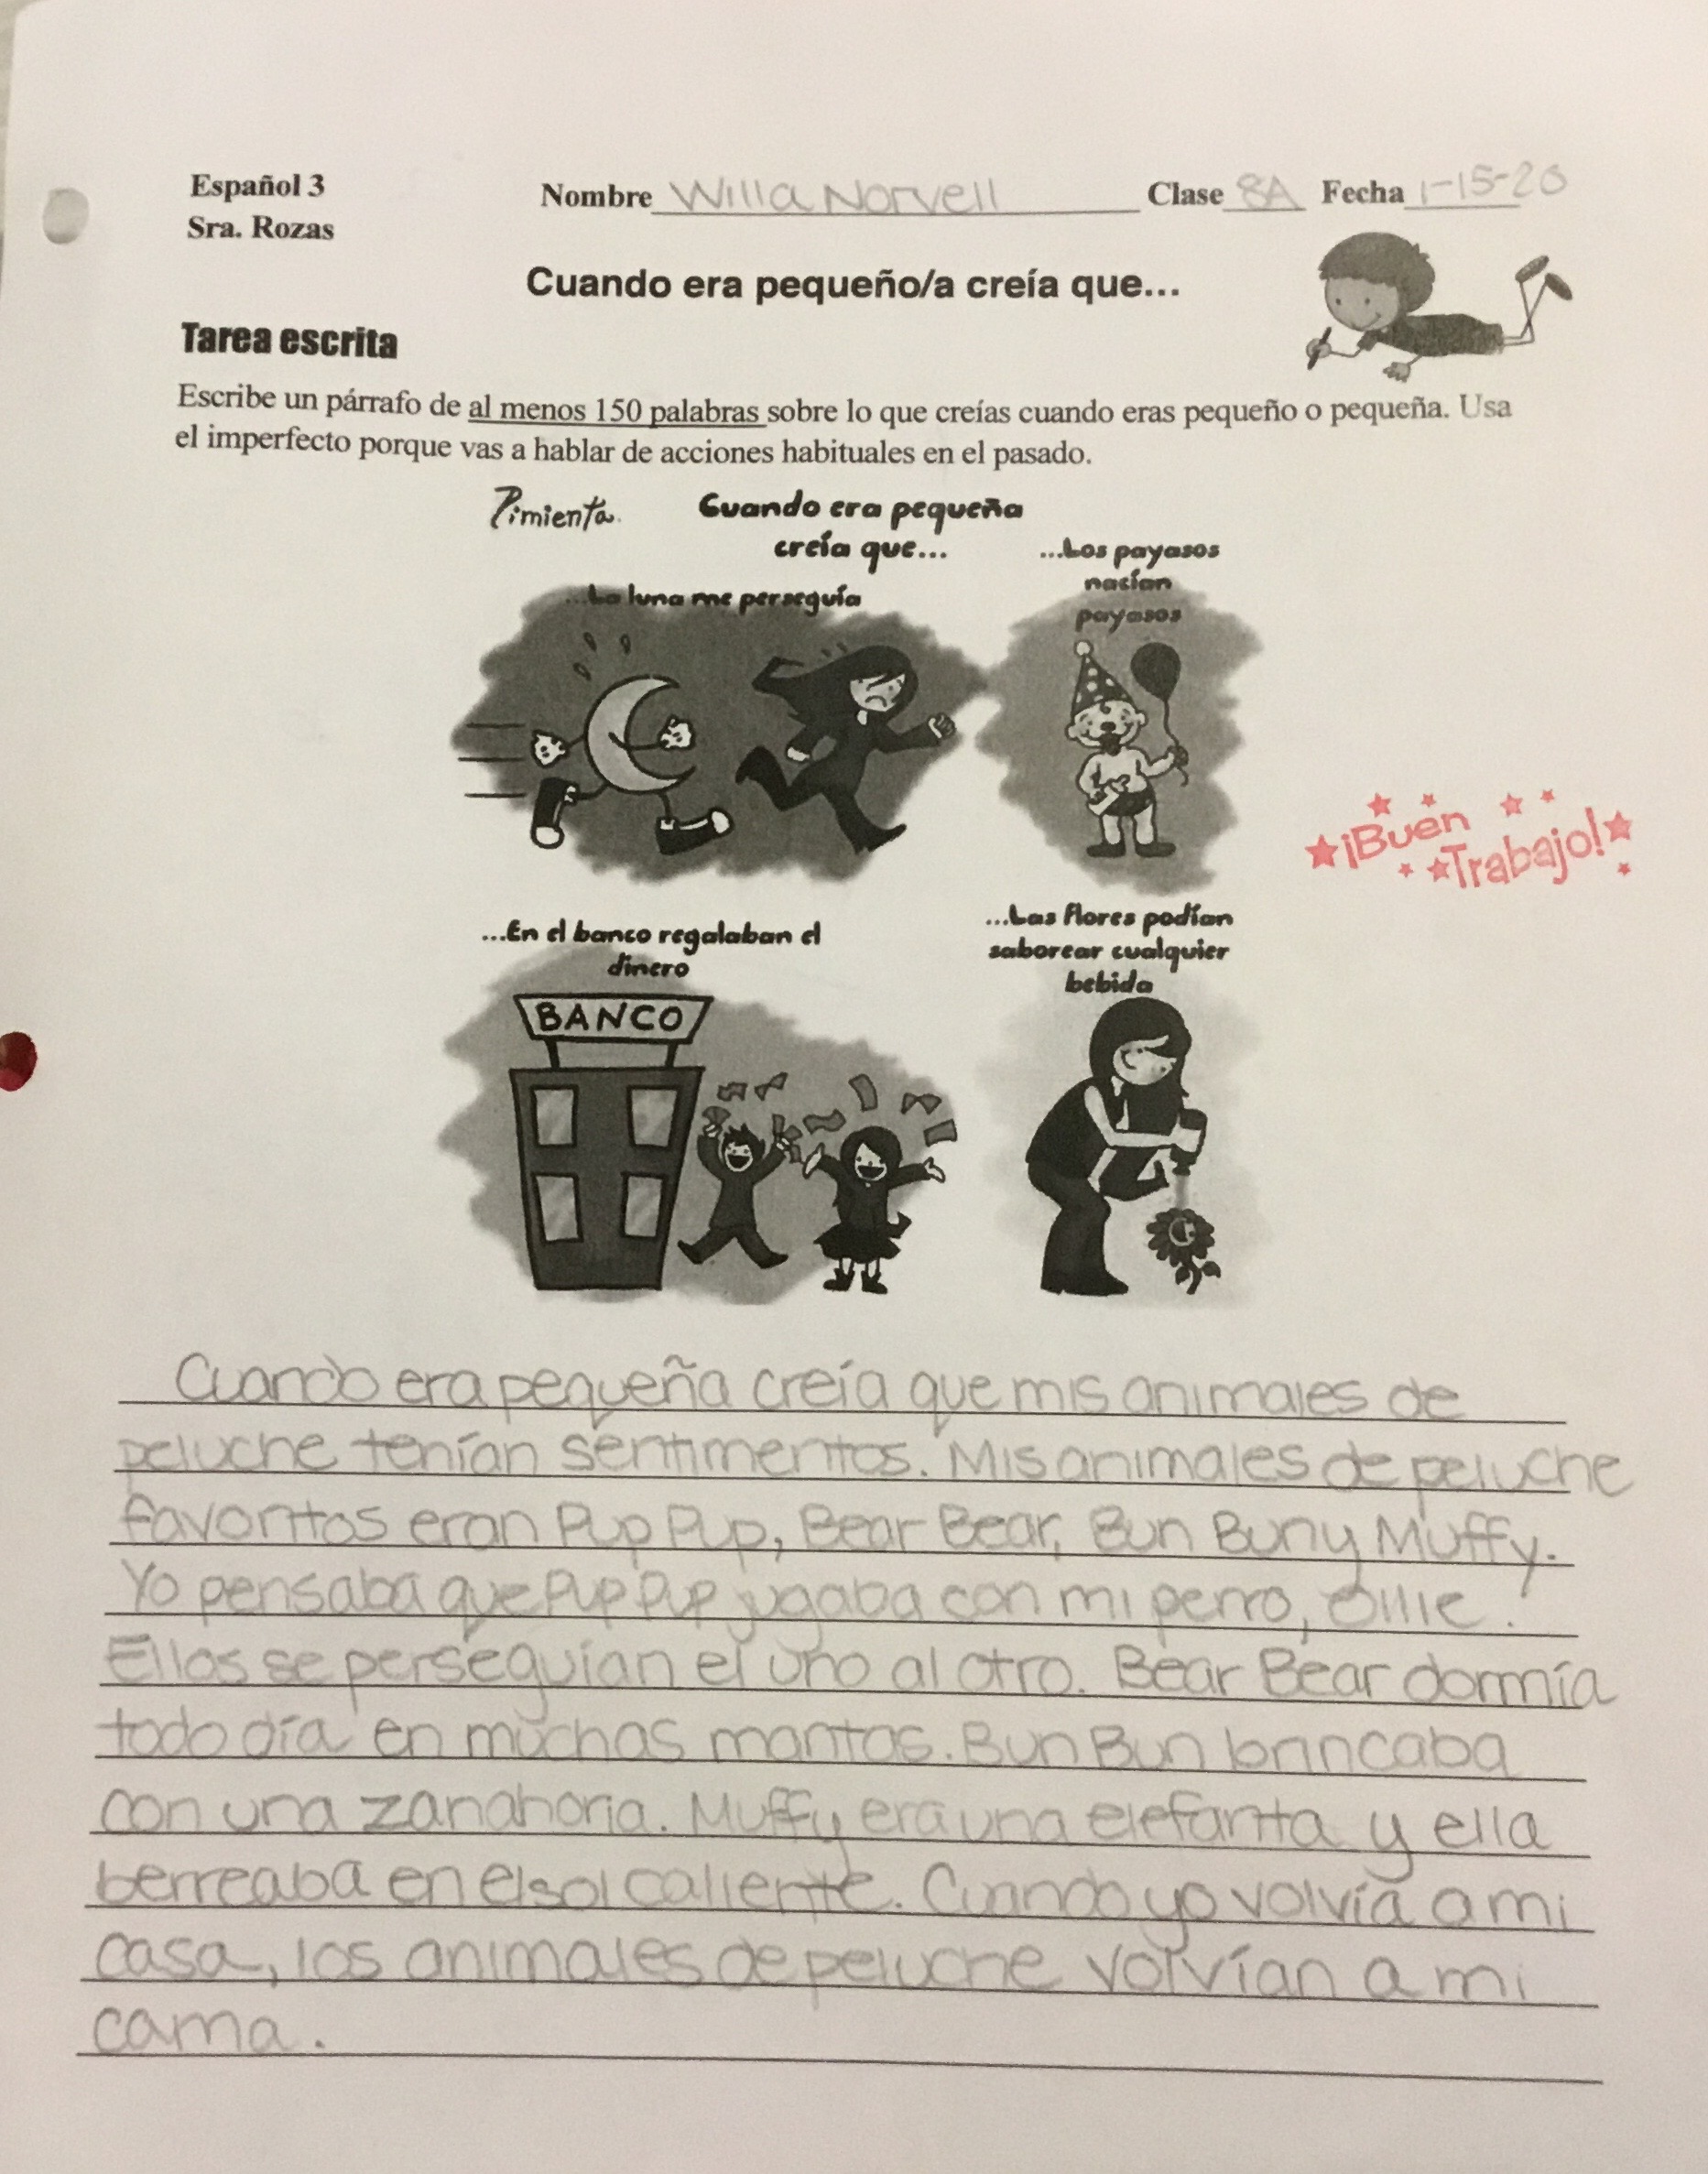 Español 3
Nombre Willa Norvell Clase 8A Fecha 1-15-20
Sra. Rozas
Cuando era pequeño/a creía que...
Tarea escrita
Escribe un párrafo de al menos 150 palabras sobre lo que creías cuando eras pequeño o pequeña. Usa
el imperfecto porque vas a hablar de acciones habituales en el pasado.
Pimienta.
Cuando era pequeña
creía que...
...La luna me perseguía
...Los payasos
nacían
payasos
¡Buen
Trabajo!
...En el banco regalaban el
dinero
BANCO
...Las flores podían
saborear cualquier
bebida
Cuando era pequeña creía que mis animales de
peluche tenían sentimentos. Mis animales de peluche
favoritos eran Pup Pup, Bear Bear, Bun Bun y Muffy.
Yo pensaba que Pup Pup jugaba con mi perro, Ollie.
Ellos se perseguían el uno al otro. Bear Bear dormía
todo día en muchas mantas. Bun Bun brincaba
con una zanahoria. Muffy era una elefanta y ella
berreaba en el sol caliente. Cuando yo volvía a mi
casa, los animales de peluche volvían a mi
cama.